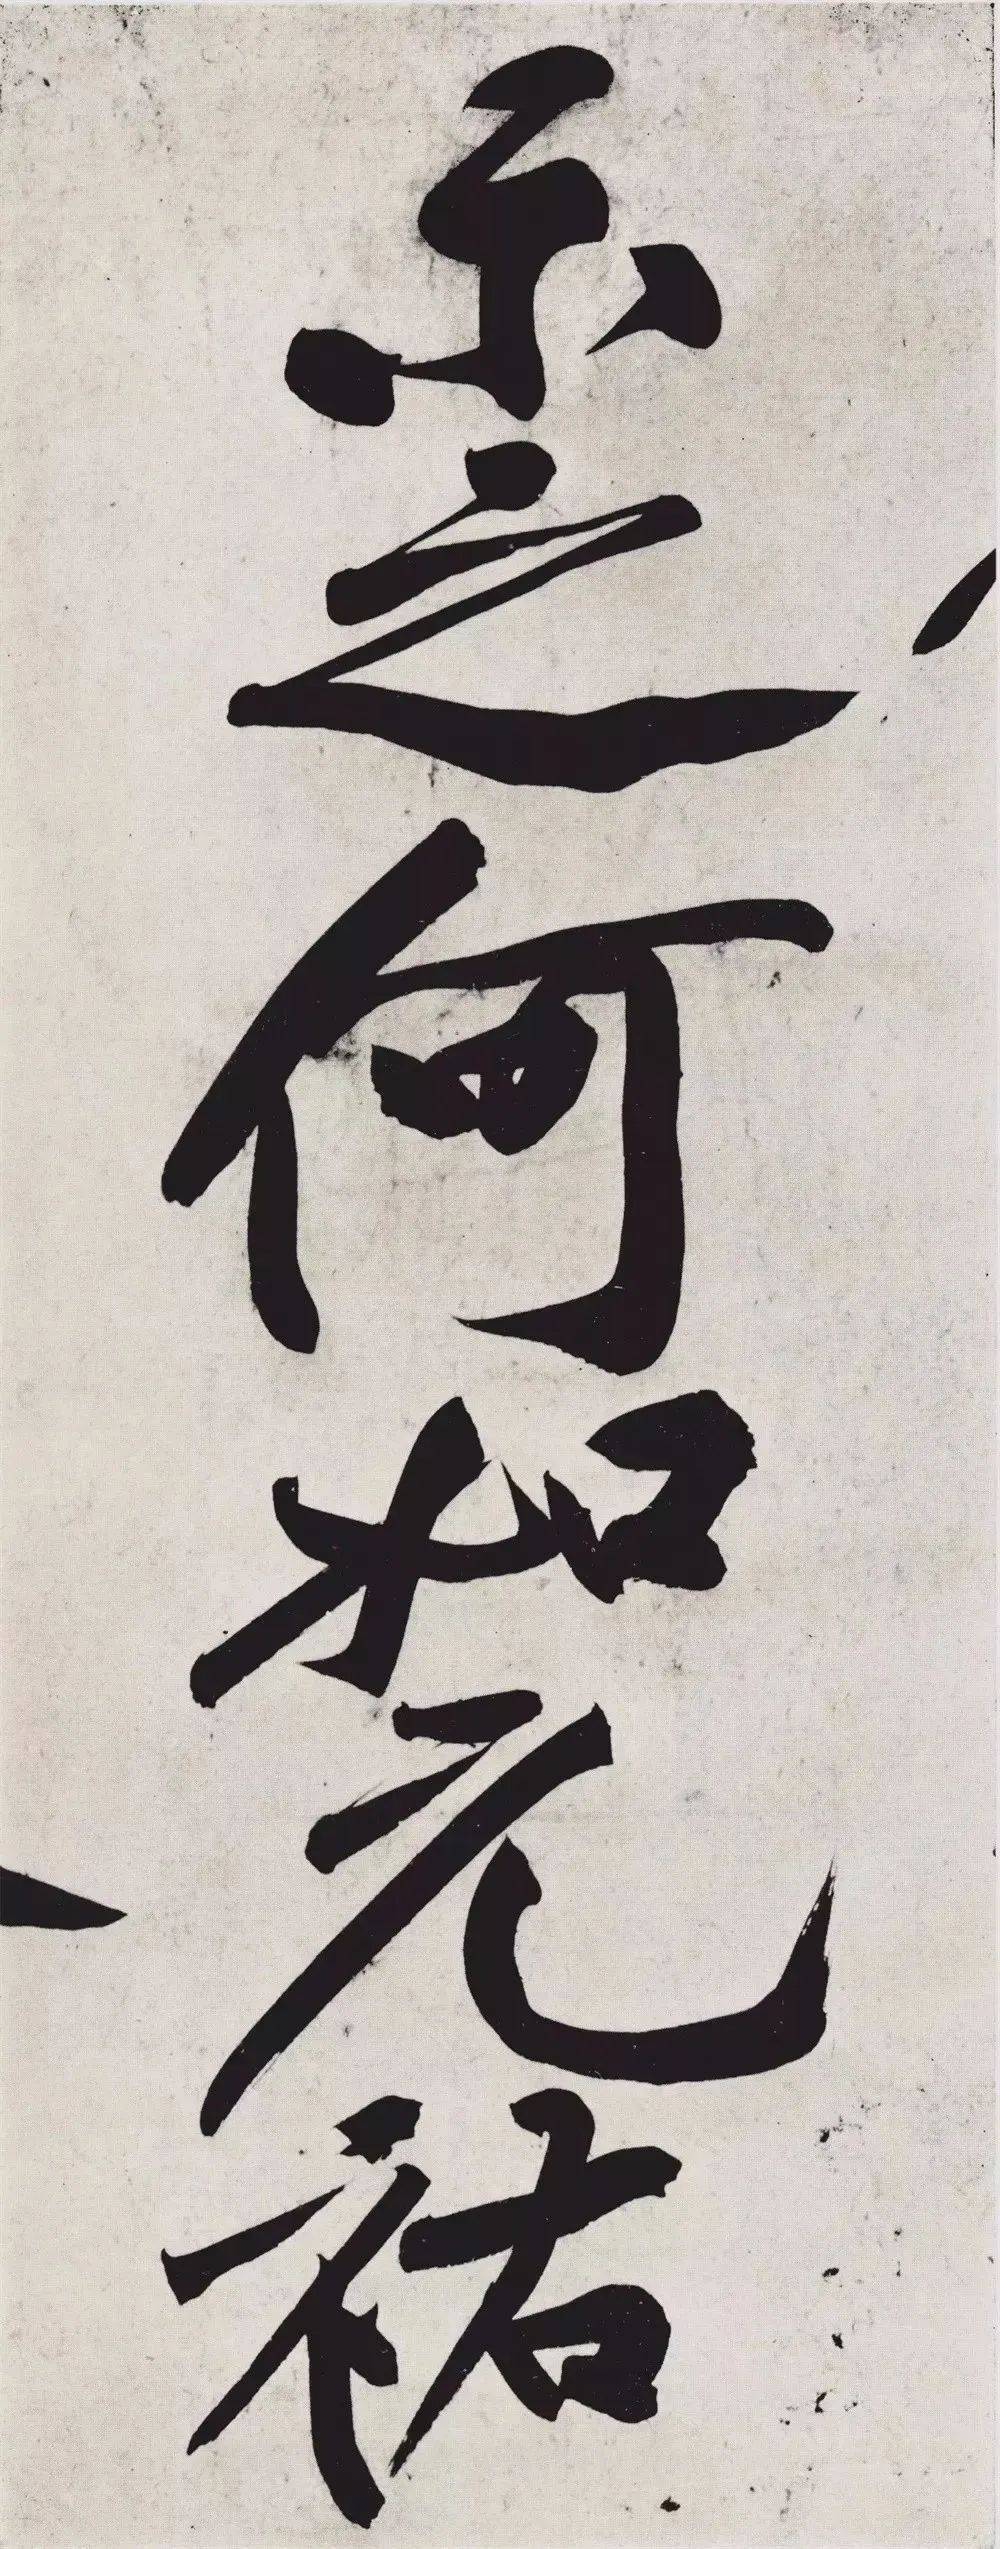 示之何如元祐